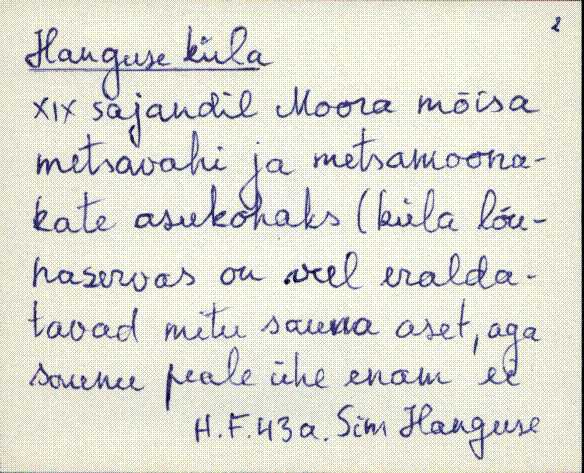 2
Hanguse küla
XIX sajandil Moora mõisa
metsavahi ja metsamoona-
kate asukohaks (küla lõu-
naservas on veel eralda-
tavad mitu sauna aset, aga
saunu peale ühe enam ei
H.F. 43 a. Sim Hanguse